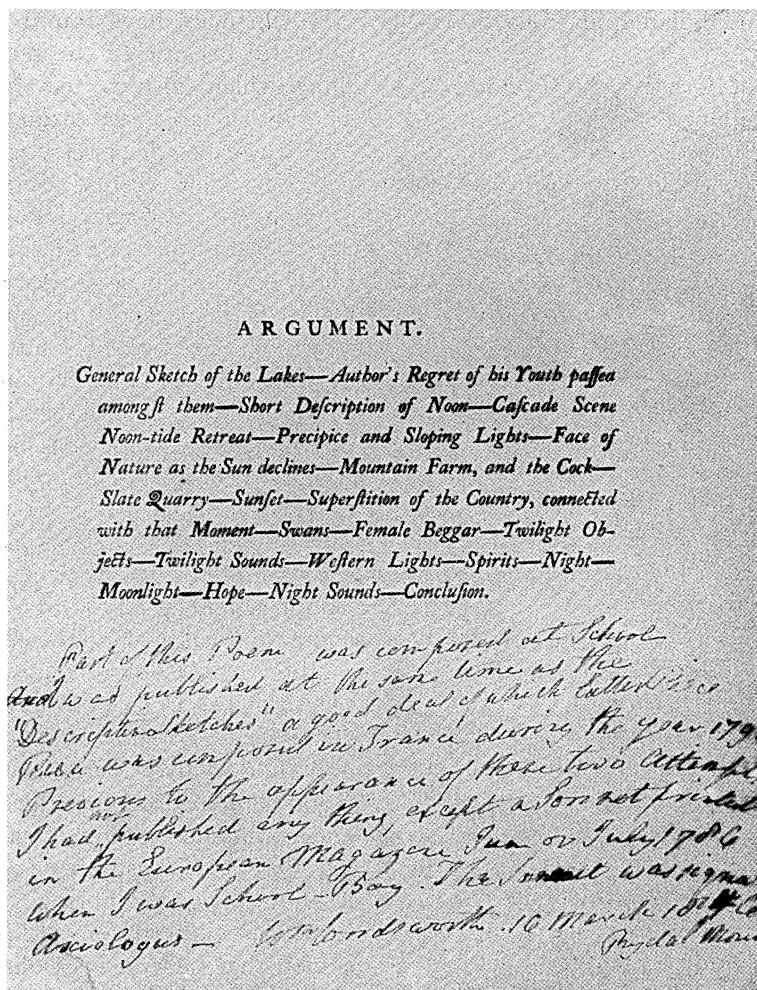 ARGUMENT.
General Sketch of the Lakes—Author's Regret of his Youth paſſed
amongſt them—Short Deſcription of Noon—Caſcade Scene
Noon-tide Retreat—Precipice and Sloping Lights—Face of
Nature as the Sun declines—Mountain Farm, and the Cock—
Slate Quarry—Sunſet—Superſtition of the Country, connected
with that Moment—Swans—Female Beggar—Twilight Ob-
jects—Twilight Sounds—Weſtern Lights—Spirits—Night—
Moonlight—Hope—Night Sounds—Concluſion.
Part of this Poem was composed at School
And was published at the same time as the
"Descriptive Sketches" a good deal of which latter Piece
was composed in France during the year 179
Previous to the appearance of these two Attempts
I had not published any thing, except a Sonnet printed
in the European Magazine June or July 1786
when I was School-Boy. The Sonnet was signed
Axiologus — Wm Wordsworth. 16 March
Rydal Moun